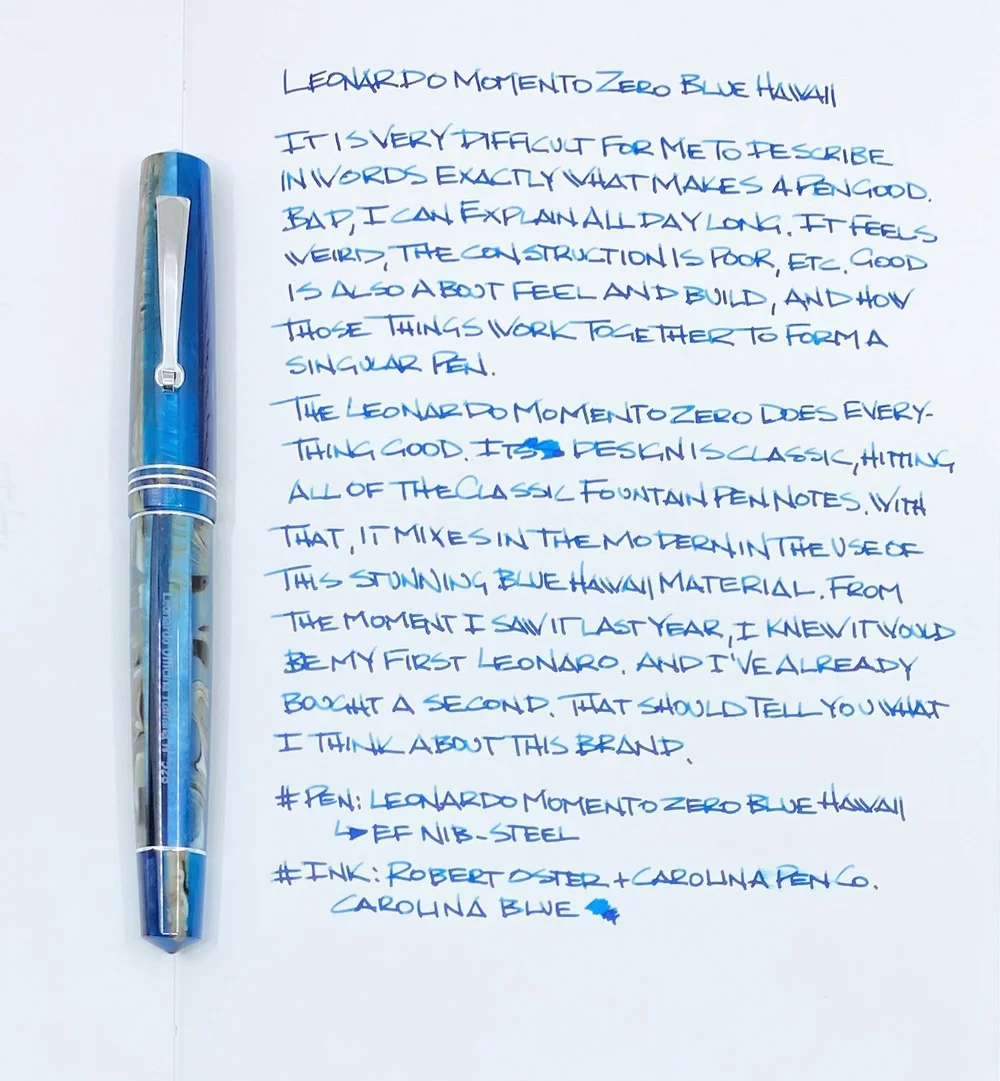 LEONARDO MOMENTO ZERO BLUE HAWAII
IT IS VERY DIFFICULT FOR ME TO DESCRIBE
IN WORDS EXACTLY WHAT MAKES A PEN GOOD.
BAD, I CAN EXPLAIN ALL DAY LONG. IT FEELS
WEIRD, THE CONSTRUCTION IS POOR, ETC. GOOD
IS ALSO ABOUT FEEL AND BUILD, AND HOW
THOSE THINGS WORK TOGETHER TO FORM A
SINGULAR PEN.
THE LEONARDO MOMENTO ZERO DOES EVERY-
THING GOOD. ITS DESIGN IS CLASSIC, HITTING
ALL OF THE CLASSIC FOUNTAIN PEN NOTES. WITH
THAT, IT MIXES IN THE MODERN IN THE USE OF
THIS STUNNING BLUE HAWAII MATERIAL. FROM
THE MOMENT I SAW IT LAST YEAR, I KNEW IT WOULD
BE MY FIRST LEONARO. AND I'VE ALREADY
BOUGHT A SECOND. THAT SHOULD TELL YOU WHAT
I THINK ABOUT THIS BRAND.
# PEN: LEONARDO MOMENTO ZERO BLUE HAWAII
↳ EF NIB - STEEL
# INK: ROBERT OSTER + CAROLINA PEN CO.
CAROLINA BLUE
Leonardo Officina Italiana